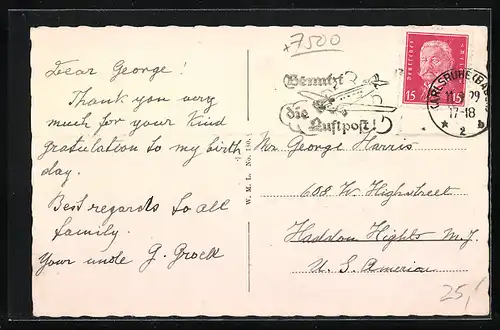 +7500
Dear George!
Thank you very
much for your kind
gratulation to my birth
day.
Best regards to all
family.
Your uncle G. Groell
Benutzt
die
Luftpost!
DEUTSCHES REICH
15 15
KARLSRUHE (BADEN)
29
17-18
* 2 b
W. M. L. No. 180.
Mr. George Harris
608 W. Highstreet
Haddon Hights N.J.
U. S. America
25,-